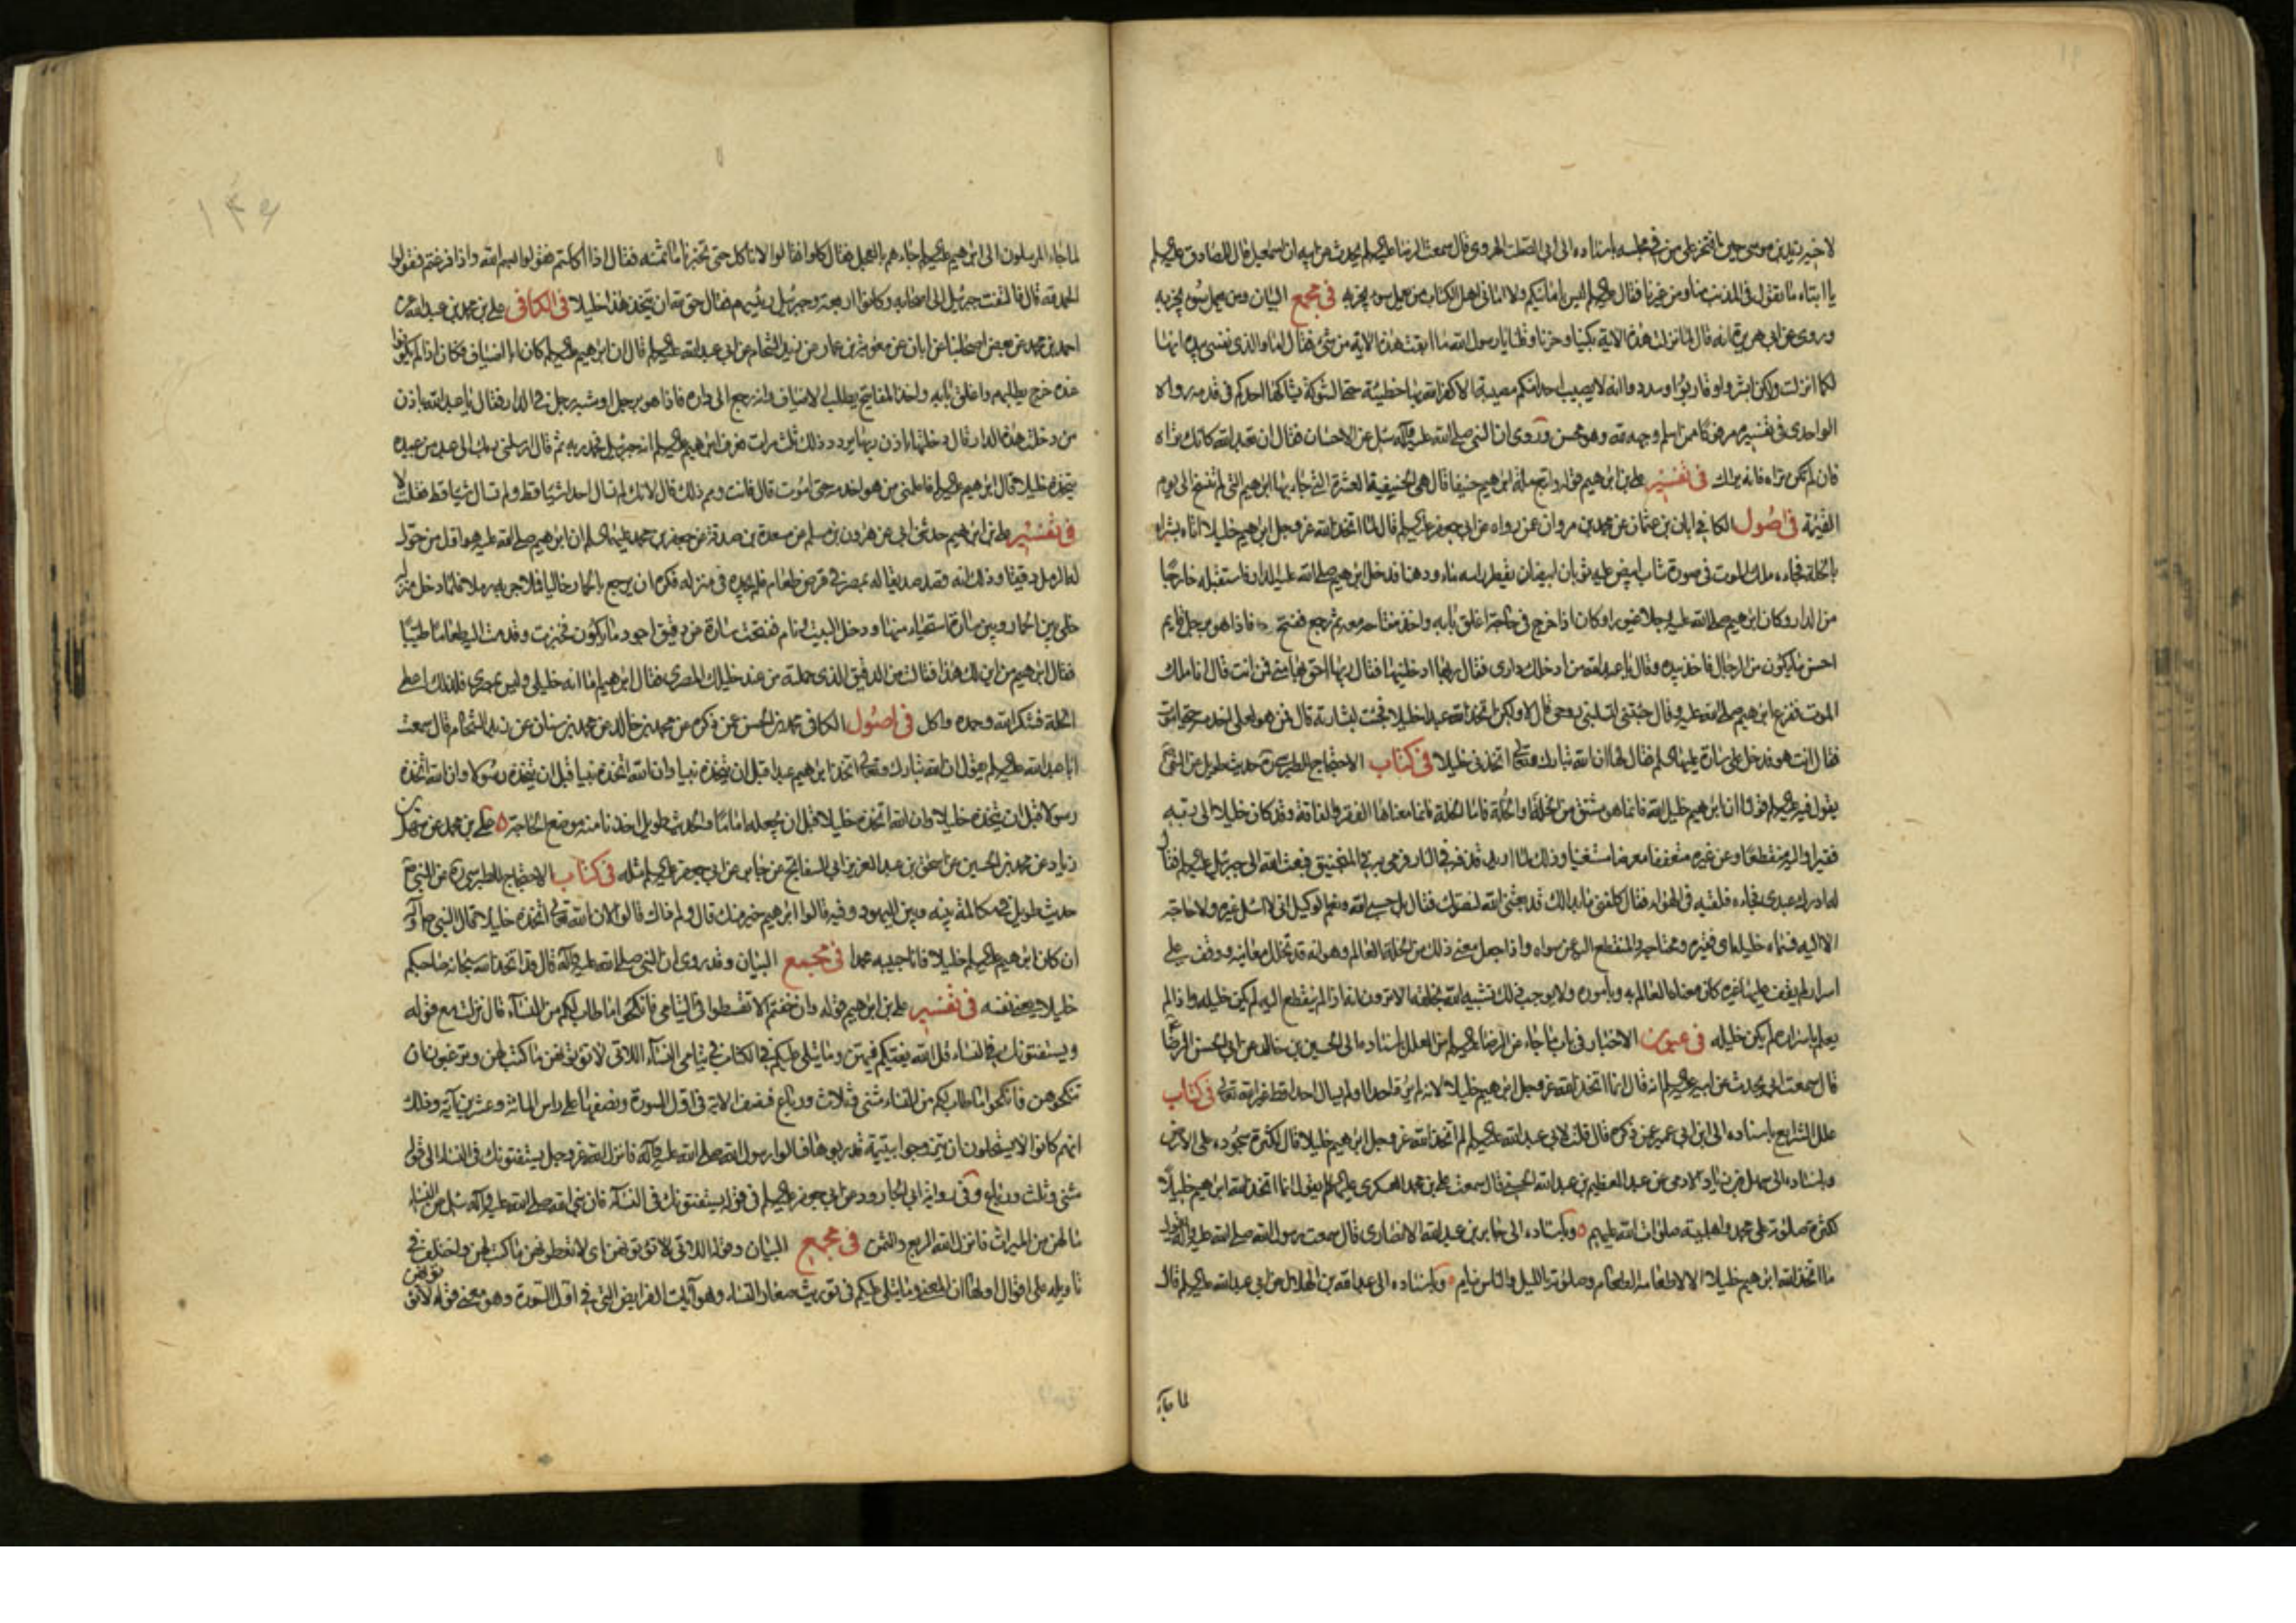 لاخيه زيد بن موسى حين افتخر على من في مجلسه باسناده الى ابي الصلت الهروي قال سمعت الرضا عليه السلم يحدث عن ابيه ان اسمعيل قال للصادق عليه السلم
يا ابتاه ما تقول في المذنب منا ومن غيرنا فقال عليه السلم ليس بامانيكم ولا اماني اهل الكتاب من يعمل سوءا يجز به في مجمع البيان ومن يعمل سوءا يجز به
وروى عن ابي هريرة انه قال لما نزلت هذه الاية بكينا وحزنا وقلنا يا رسول الله ما ابقت هذه الاية من شيء فقال اما والذي نفسي بيده انها
لكما انزلت ولكن ابشروا وقاربوا وسددوا انه لا يصيب احدا منكم مصيبة الا كفر الله بها خطيئة حتى الشوكة يشاكها احدكم في قدمه رواه
الواحدي في تفسيره مرفوعا من اسلم وجهه لله وهو محسن وروى ان النبي صلى الله عليه وآله سئل عن الاحسان فقال ان تعبد الله كانك تراه
فان لم تكن تراه فانه يراك في تفسير علي بن ابرهيم قوله واتبع ملة ابرهيم حنيفا قال هي الحنيفية العشرة التي جاء بها ابرهيم التي لم تنسخ الى يوم
القيمة في اصول الكافي ابان بن عثمان عن محمد بن مروان عن رواه عن ابي جعفر عليه السلم قال لما اتخذ الله عز وجل ابرهيم خليلا اتاه بشراه
بالخلة فجاءه ملك الموت في صورة شاب ابيض عليه ثوبان ابيضان يقطر راسه ماء ودهنا فدخل ابرهيم صلى الله عليه الدار فاستقبله خارجا
من الدار وكان ابرهيم صلى الله عليه رجلا غيورا وكان اذا خرج في حاجة اغلق بابه واخذ مفتاحه معه ثم رجع ففتح فاذا هو برجل قايم
احسن ما يكون من الرجال فاخذ بيده وقال يا عبد الله من ادخلك داري فقال ربها ادخلنيها فقال ربها احق بها مني فمن انت قال انا ملك
الموت ففزع ابرهيم صلى الله عليه وقال جئتني لتسلبني روحي قال لا ولكن اتخذ الله عبدا خليلا فجئت لبشارته قال فمن هو لعلي اخدمه حتى اموت
فقال انت هو فدخل على سارة عليها السلم فقال لها ان الله تبارك وتعالى اتخذني خليلا في كتاب الاحتجاج للطبرسي ره حديث طويل عن النبي ص
يقول فيه عليه السلم قولنا ان ابرهيم خليل الله فانما هو مشتق من الخلة او الخلة فاما الخلة فانما معناها الفقر والفاقة وقد كان خليلا الى ربه
فقيرا واليه منقطعا وعن غيره متعففا معرضا مستغنيا وذلك لما اريد قذفه في النار فرمي به في المنجنيق فبعث الله الى جبرئيل عليه السلم فقال
له ادرك عبدي فجاءه فلقيه في الهواء فقال كلفني ما بدا لك قد بعثني الله لنصرتك فقال بل حسبي الله ونعم الوكيل اني لا اسئل غيره ولا حاجة
الا اليه فسماه خليله اي فقيره ومحتاجه والمنقطع اليه عن سواه واذا جعل معنى ذلك من الخلة العالم وهو انه قد تخلل معانيه ووقف على
اسرار لم يقف عليها غيره كان معناه العالم به وباموره ولا يوجب ذلك تشبيه الله بخلقه الا ترون انه اذا لم ينقطع اليه لم يكن خليله واذا لم
يعلم باسراره لم يكن خليله في عيون الاخبار في باب ما جاء عن الرضا عليه السلم من العلل باسناده الى الحسين بن خالد عن ابي الحسن الرضا ع
قال سمعت ابي يحدث عن ابيه عليه السلم انه قال انما اتخذ الله عز وجل ابرهيم خليلا لانه لم يرد احدا ولم يسال احدا قط غير الله تعالى في كتاب
علل الشرايع باسناده الى ابن ابي عمير عن ذكره قال قلت لابي عبد الله عليه السلم لم اتخذ الله عز وجل ابرهيم خليلا قال لكثرة سجوده على الارض
وباسناده الى سهل بن زياد الادمي عن عبد العظيم بن عبد الله الحسني قال سمعت علي بن محمد العسكري عليه السلم يقول انما اتخذ الله ابرهيم خليلا
لكثرة صلوته على محمد واهل بيته صلوات الله عليهم وباسناده الى جابر بن عبد الله الانصاري قال سمعت رسول الله صلى الله عليه وآله يقول
ما اتخذ الله ابرهيم خليلا الا لاطعامه الطعام وصلوته بالليل والناس نيام وباسناده الى عبد الله بن الهلال عن ابي عبد الله عليه السلم قال
لما جاء
لما جاء المرسلون الى ابرهيم عليه السلم جاءهم بالعجل فقال كلوا فقالوا لا ناكل حتى تخبرنا ما ثمنه فقال اذا اكلتم فقولوا بسم الله واذا فرغتم فقولوا
الحمد لله قال فالتفت جبرئيل الى اصحابه وكانوا اربعة وجبرئيل رئيسهم فقال حق لله ان يتخذ هذا خليلا في الكافي علي بن محمد بن عبد الله عن
احمد بن محمد عن بعض اصحابنا عن ابان عن معوية بن عمار عن زيد الشحام عن ابي عبد الله عليه السلم قال ان ابرهيم عليه السلم كان ابا اضياف فكان اذا لم يكونوا
عنده خرج يطلبهم واغلق بابه واخذ المفاتيح يطلب الاضياف وانه رجع الى داره فاذا هو برجل او شبه رجل في الدار فقال يا عبد الله باذن
من دخلت هذه الدار قال دخلتها باذن ربها يردد ذلك ثلث مرات فعرف ابرهيم عليه السلم انه جبرئيل فحمد ربه ثم قال ارسلني ربك الى عبد من عبيده
يتخذه خليلا قال ابرهيم عليه السلم فاعلمني من هو اخدمه حتى اموت قال فانت هو ومم ذلك قال لانك لم تسال احدا شيئا قط ولم تسال شيئا قط فقلت لا
في تفسير علي بن ابرهيم حدثني ابي عن هرون بن مسلم عن مسعدة بن صدقة عن جعفر بن محمد عليهما السلم ان ابرهيم صلى الله عليه هو اول من حول
له الرمل دقيقا وذلك انه قصد صديقا له بمصر في قرض طعام فلم يجده في منزله فكره ان يرجع بالحمار خاليا فملا جرابه رملا فلما دخل منزله
خلى بين الحمار وبين سارة استحياء منها ودخل البيت ونام ففتحت سارة عن دقيق اجود ما يكون فخبزت وقدمت اليه طعاما طيبا
فقال ابرهيم من اين لك هذا فقالت من الدقيق الذي حملته من عند خليلك المصري فقال ابرهيم اما انه خليلي وليس بمصري فلذلك اعطي
الخلة فشكر الله وحمده واكل في اصول الكافي محمد بن الحسن عن ذكره عن محمد بن خالد عن محمد بن سنان عن زيد الشحام قال سمعت
ابا عبد الله عليه السلم يقول ان الله تبارك وتعالى اتخذ ابرهيم عبدا قبل ان يتخذه نبيا وان الله اتخذه نبيا قبل ان يتخذه رسولا وان الله اتخذه
رسولا قبل ان يتخذه خليلا وان الله اتخذه خليلا قبل ان يجعله اماما والحديث طويل اخذنا منه موضع الحاجة علي بن محمد عن سهل بن
زياد عن محمد بن الحسين عن اسحق بن عبد العزيز ابي السفاتج عن جابر عن ابي جعفر عليه السلم مثله في كتاب الاحتجاج للطبرسي ره عن النبي ص
حديث طويل في مكالمة بينه وبين اليهود وفيه قالوا ابرهيم خير منك قال ولم ذاك قالوا لان الله تعالى اتخذه خليلا قال النبي ص وآله
ان كان ابرهيم عليه السلم خليلا فانا حبيبه محمد في مجمع البيان وقد روى ان النبي صلى الله عليه وآله قال قد اتخذ الله سبحانه صاحبكم
خليلا يعني نفسه في تفسير علي بن ابرهيم قوله وان خفتم الا تقسطوا في اليتامى فانكحوا ما طاب لكم من النساء قال نزلت مع قوله
ويستفتونك في النساء قل الله يفتيكم فيهن وما يتلى عليكم في الكتاب في يتامى النساء اللاتي لا تؤتونهن ما كتب لهن وترغبون ان
تنكحوهن فانكحوا ما طاب لكم من النساء مثنى وثلاث ورباع فنصف الاية في اول السورة ونصفها على راس المائة وعشرين آية وذلك
انهم كانوا لا يستحلون ان يتزوجوا يتيمة قد ربوها فسالوا رسول الله صلى الله عليه وآله فانزل الله عز وجل يستفتونك في النساء الى قوله
مثنى وثلث ورباع وفي رواية ابي الجارود عن ابي جعفر عليه السلم في قوله يستفتونك في النساء فان نبي الله صلى الله عليه وآله سئل عن النساء
ما لهن من الميراث فانزل الله الربع والثمن في مجمع البيان وقوله اللاتي لا تؤتونهن اي لا تعطونهن ما كتب لهن واختلف في
تاويله على اقوال اولها ان المعنى وما يتلى عليكم في توريث صغار النساء وهو آيات الفرايض التي في اول السورة وهو معنى قوله لا تؤتونهن
١٤٩